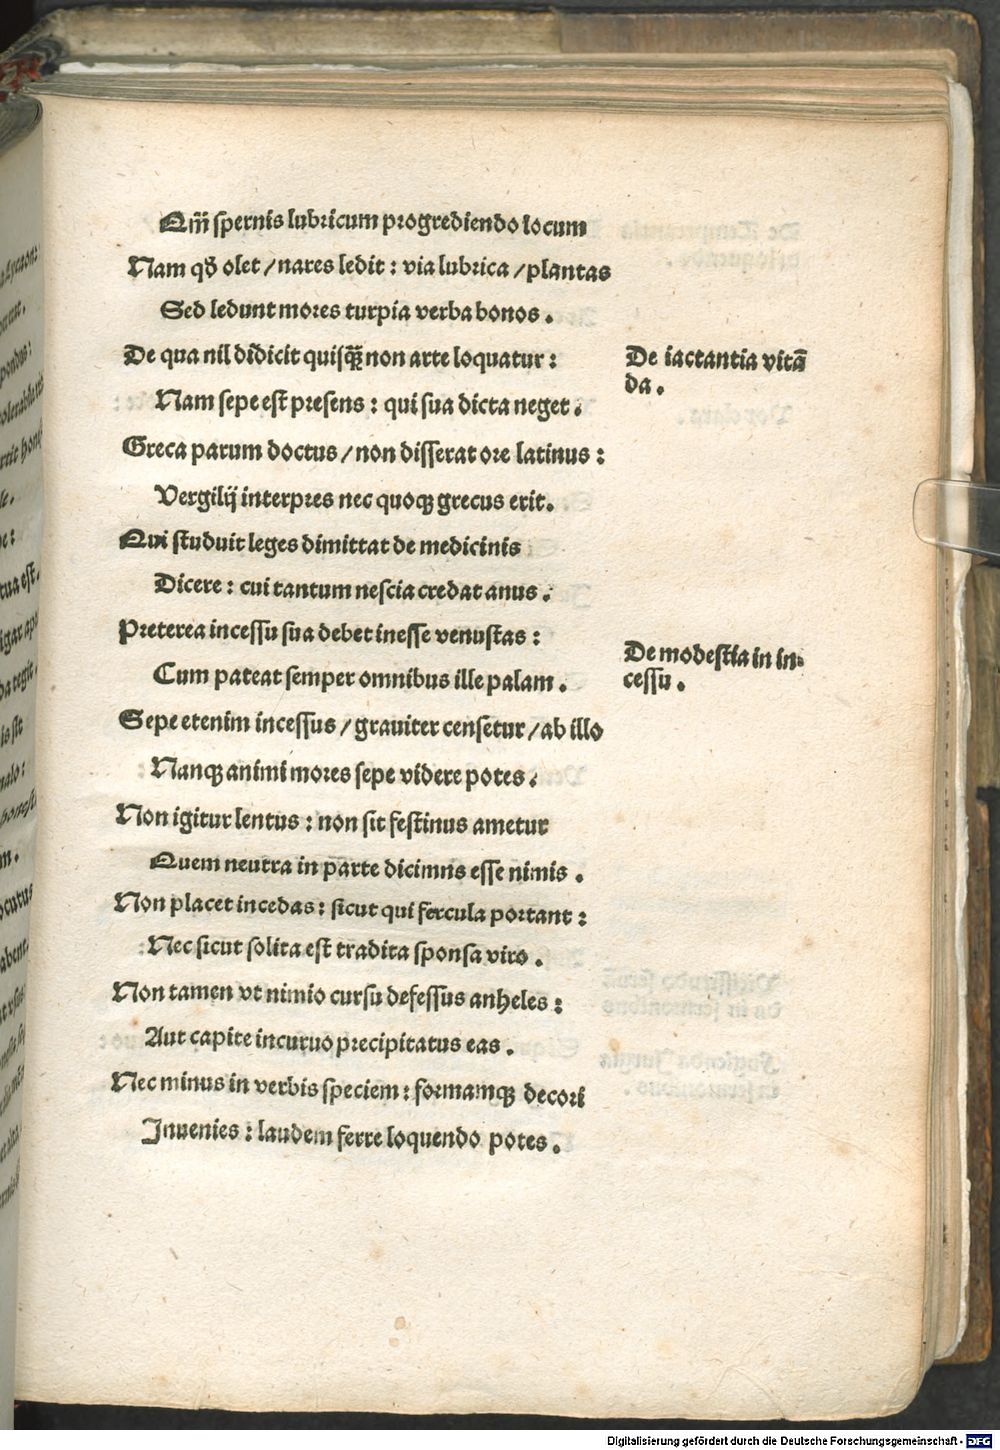 Qm̄ spernis lubricum progrediendo locum
Nam qđ olet / nares ledit : via lubrica / plantas
Sed ledunt mores turpia verba bonos .
De qua nil didicit quisq̃ȝ non arte loquatur :
Nam sepe est presens : qui sua dicta neget .
Greca parum doctus / non disserat ore latinus :
Vergilij interpres nec quoqȝ grecus erit .
Qui studuit leges dimittat de medicinis
Dicere : cui tantum nescia credat anus .
Preterea incessu sua debet inesse venustas :
Cum pateat semper omnibus ille palam .
Sepe etenim incessus / grauiter censetur / ab illo
Nanqȝ animi mores sepe videre potes .
Non igitur lentus : non sit festinus ametur
Quem neutra in parte dicimus esse nimis .
Non placet incedas : sicut qui fercula portant :
Nec sicut solita est tradita sponsa viro .
Non tamen vt nimio cursu defessus anheles :
Aut capite incuruo precipitatus eas .
Nec minus in verbis speciem : formamqȝ decori
Inuenies : laudem ferre loquendo potes .
De iactantia vitā
da .
De modestia in in-
cessu .
Digitalisierung gefördert durch die Deutsche Forschungsgemeinschaft - DFG